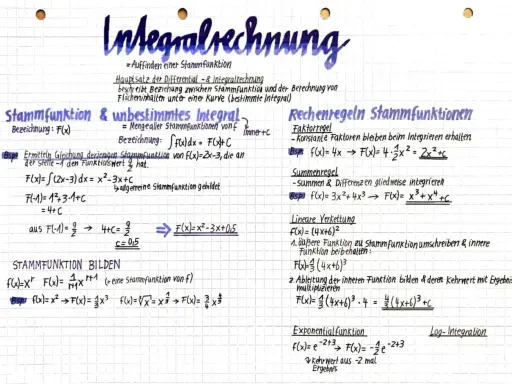 Integralrechnung
= Auffinden einer Stammfunktion
Hauptsatz der Differential- & Integralrechnung
beschreibt Beziehung zwischen Stammfunktion und der Berechnung von
Flächeninhalten unter einer Kurve (bestimmte Integral)
Stammfunktion & unbestimmtes Integral
Bezeichnung: F(x)
= Menge aller Stammfunktionen von f
Bezeichnung: ∫f(x)dx = F(x)+C
immer +C
Bsp: Ermitteln Gleichung derjenigen Stammfunktion von f(x)=2x-3, die an
der Stelle -1 den Funktionswert 9/2 hat.
F(x)=∫(2x-3)dx = x²-3x+C
↳ allgemeine Stammfunktion gebildet
F(-1)= 1²+3·1+C
= 4+C
aus F(-1)= 9/2 → 4+C= 9/2 ⇒ F(x)=x²-3x+0,5
C=0,5
STAMMFUNKTION BILDEN
f(x)=x^r F(x)= 1/r+1 x^r+1 (= eine Stammfunktion von f)
Bsp: f(x)=x² → F(x)= 1/3 x³ f(x)=∛x = x^1/3 → F(x)= 3/4 x^4/3
Rechenregeln Stammfunktionen
Faktorregel
- Konstante Faktoren bleiben beim Integrieren erhalten
Bsp: f(x)= 4x → F(x)= 4·1/2x² = 2x²+C
Summenregel
- Summen & Differenzen gliedweise integrieren
Bsp: f(x)= 3x²+4x³ → F(x)= x³+x⁴+C
Lineare Verkettung
f(x)= (4x+6)²
1. äußere Funktion zu Stammfunktion umschreiben & innere
Funktion beibehalten:
F(x)= 1/3 (4x+6)³
2. Ableitung der inneren Funktion bilden & deren Kehrwert mit Ergebnis
multiplizieren
F(x)= 1/3 (4x+6)³ · 4 = 4/3 (4x+6)³+C
Exponentialfunktion
Log-Integration
f(x)= e^-2+3 → F(x)= -1/2 e^-2+3
↳ Kehrwert aus -2 mal
Ergebnis